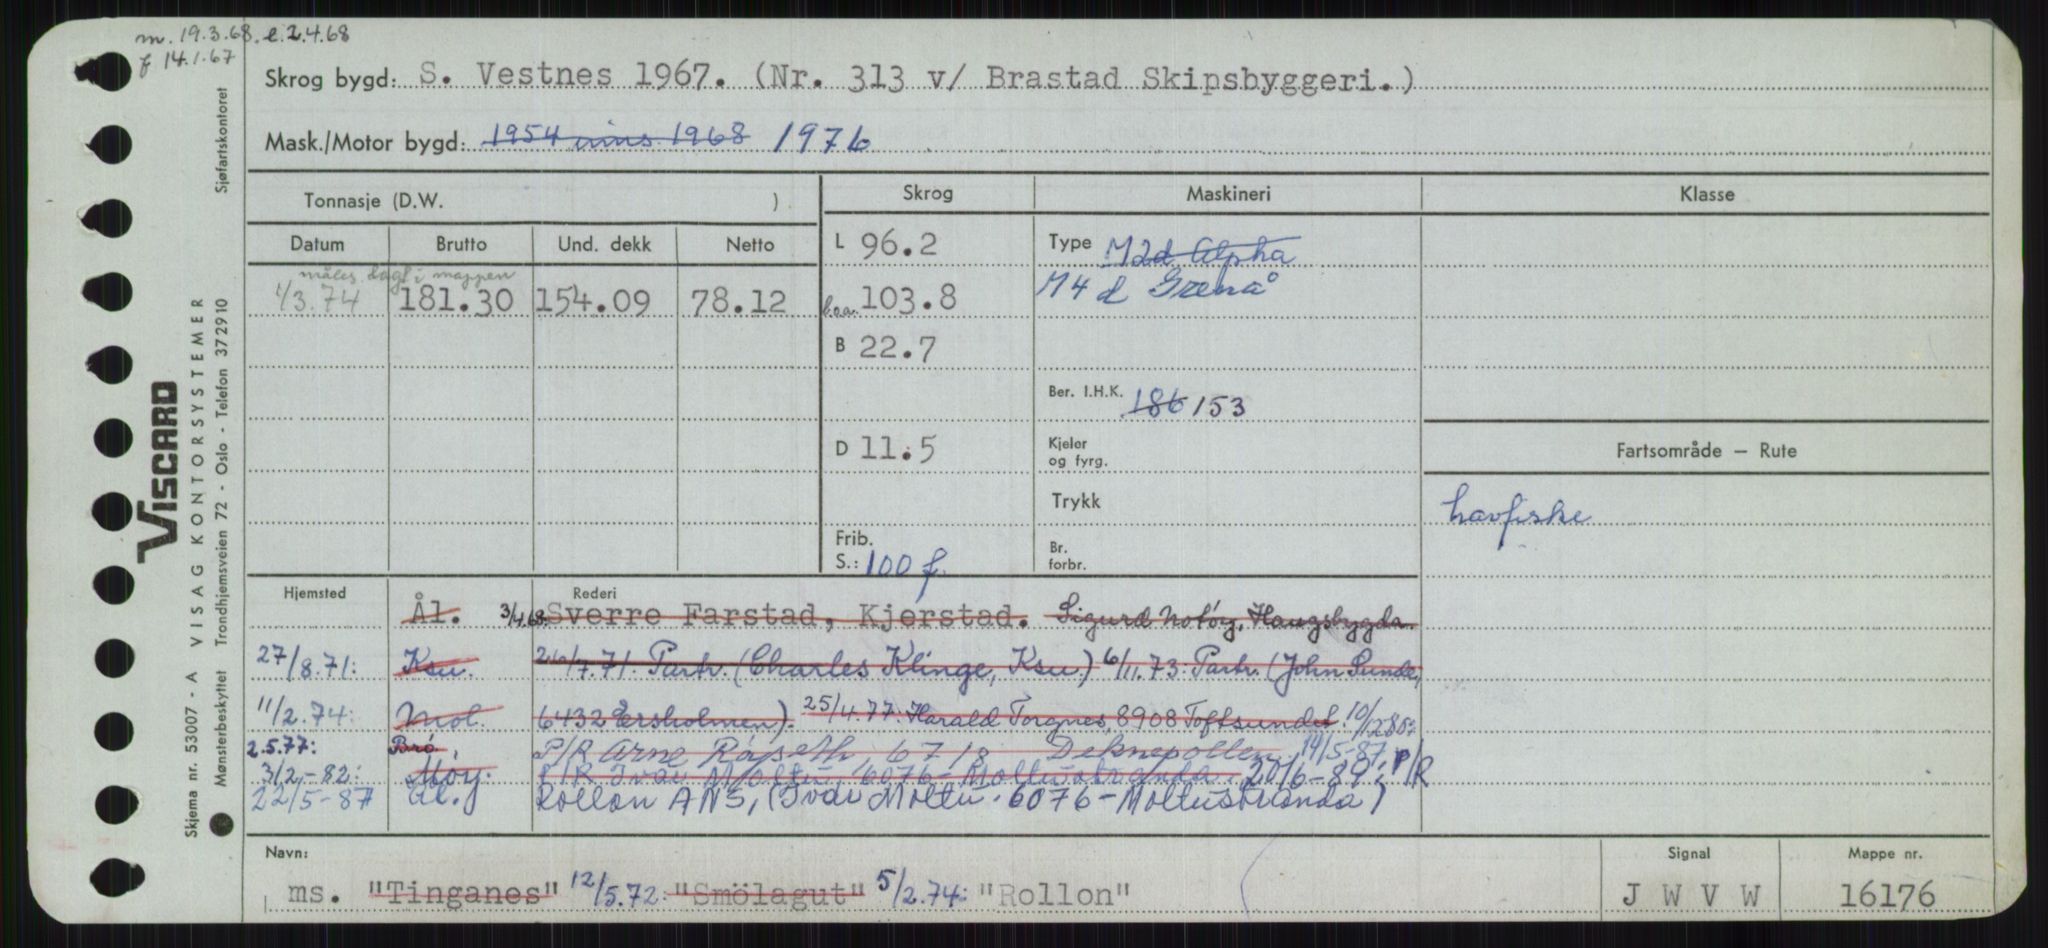 m. 19.3.68. e. 2.4.68
f 14.1.67
Skrog bygd: S. Vestnes 1967. (Nr. 313 v/ Brastad Skipsbyggeri.)
Mask./Motor bygd: 1954 inns 1968 1976
Tonnasje (D.W. )
Skrog
Maskineri
Klasse
Datum Brutto Und. dekk Netto
L 96.2
Type M2d Alpha
måles dagl i mappen
1/3.74 181.30 154.09 78.12
loa. 103.8
M4 d Grenå
B 22.7
Ber. I.H.K. 186 153
D 11.5
Kjeler
og fyrg.
Fartsområde — Rute
Trykk
havfiske
Frib.
S.: 100 f.
Br.
forbr.
Hjemsted
Rederi
Ål. 3/4.68: Sverre Farstad, Kjerstad. Sigurd Notøy, Haugsbygda.
27/8.71: Ksu. 26/7.71: Partr. (Charles Klinge, Ksu.) 6/11.73: Partr. (John Sunde,
11/2.74: Mol. 6432 Ersholmen). 25/4.77: Harald Torgnes 8908 Toftsundet. 10/12 80:
2.5.77: Brø, P/R Arne Råseth 6718 Deknepollen, 14/5-87: P/R
3/2-82: Møy. P/R Ivar Moltu, 6076-Moltustranda. 20/6-89:
22/5-87 Ål. Rollon ANS, (Ivar Moltu. 6076-Moltustranda)
Navn:
ms. "Tinganes" 12/5.72: "Smölagut" 5/2.74: "Rollon"
Signal
J W V W
Mappe nr.
16176
VISCARD
Skjema nr. 53007 - A VISAG KONTORSYSTEMER
Mønsterbeskyttet Trondhjemsveien 72 - Oslo - Telefon 372910 Sjøfartskontoret